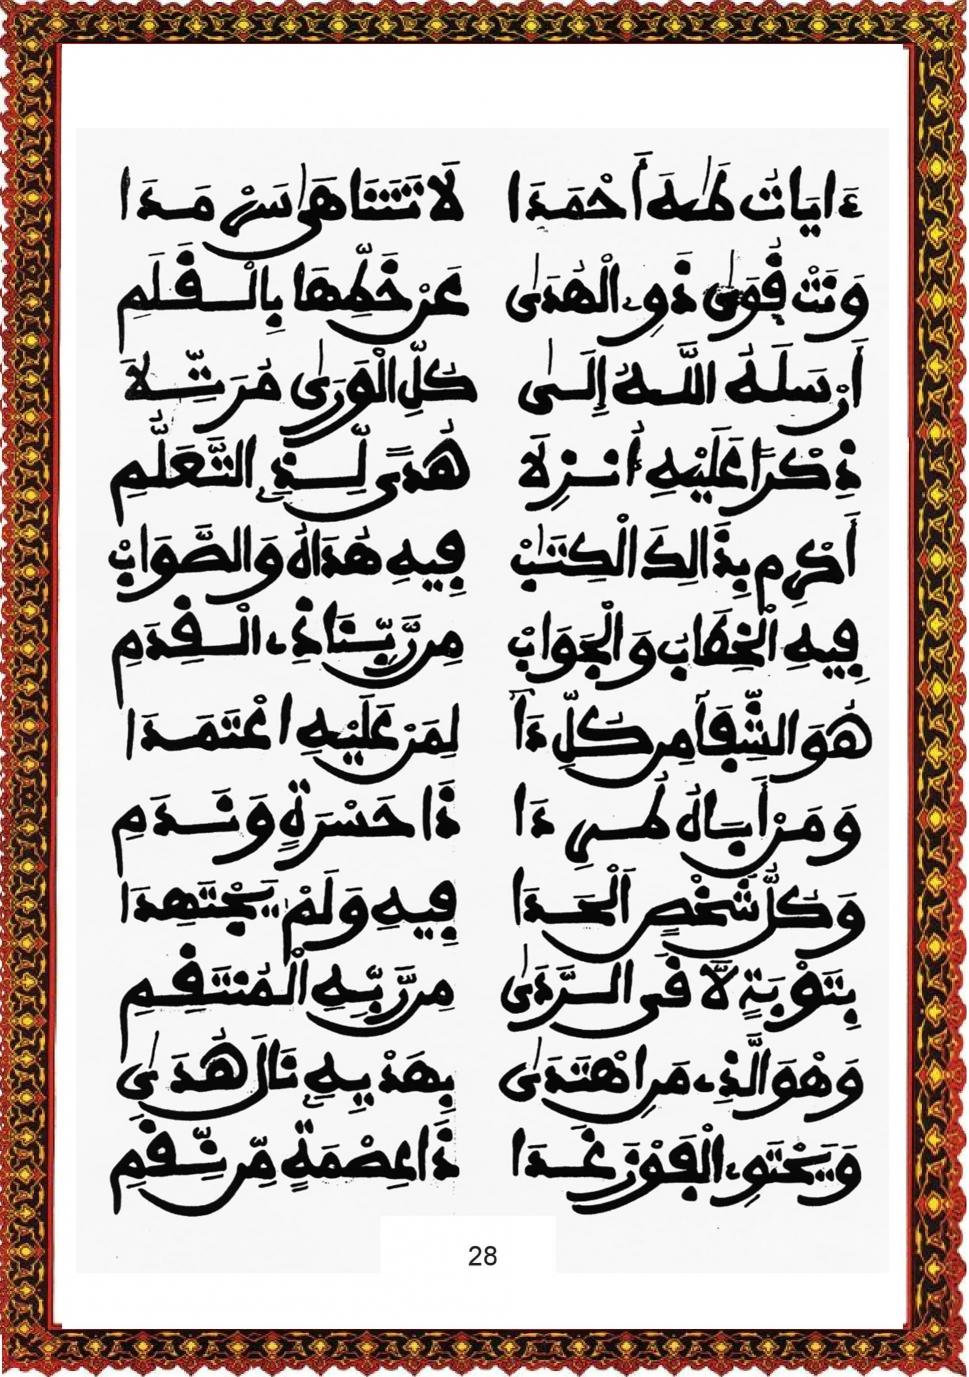 ءَايَاتُ طَٰهَ أَحْمَدَا لَا تَتَنَاهَىٰ سَرْمَدَا
وَنَتْ قُوَىٰ ذَوِي الْهُدَىٰ عَنْ خَطِّهَا بِالْقَلَمِ
أَرْسَلَهُ اللَّهُ إِلَىٰ كُلِّ الْوَرَىٰ مُرَتِّلَا
ذِكْرًا عَلَيْهِ أُنزِلَا هُدًى لِّذِي التَّعَلُّمِ
أَكْرِم بِذَالِكَ الْكِتَٰبْ فِيهِ هُدَاهُ وَالصَّوَابْ
فِيهِ الْخِطَابُ وَالْجَوَابْ مِن رَّبِّنَا ذِي الْقِدَمِ
هُوَ الشِّفَا مِن كُلِّ دَآ لِمَنْ عَلَيْهِ اعْتَمَدَا
وَمَنْ أَبَاهُ طُمِي دَا ذَا حَسْرَةٍ وَنَدَمِ
وَكُلُّ شَخْصٍ اَلْحَدَا فِيهِ وَلَمْ يَجْتَهِدَا
بِتَوْبَةٍ لَّاقَى الرَّدَىٰ مِن رَّبِّهِ الْمُنتَقِمِ
وَهْوَ الَّذِي مَنِ اهْتَدَىٰ بِهَدْيِهِ نَالَ هُدَىٰ
وَيَحْتَوِي الْفَوْزَ غَدَا ذَا عِصْمَةٍ مِّن نِّقَمِ
28